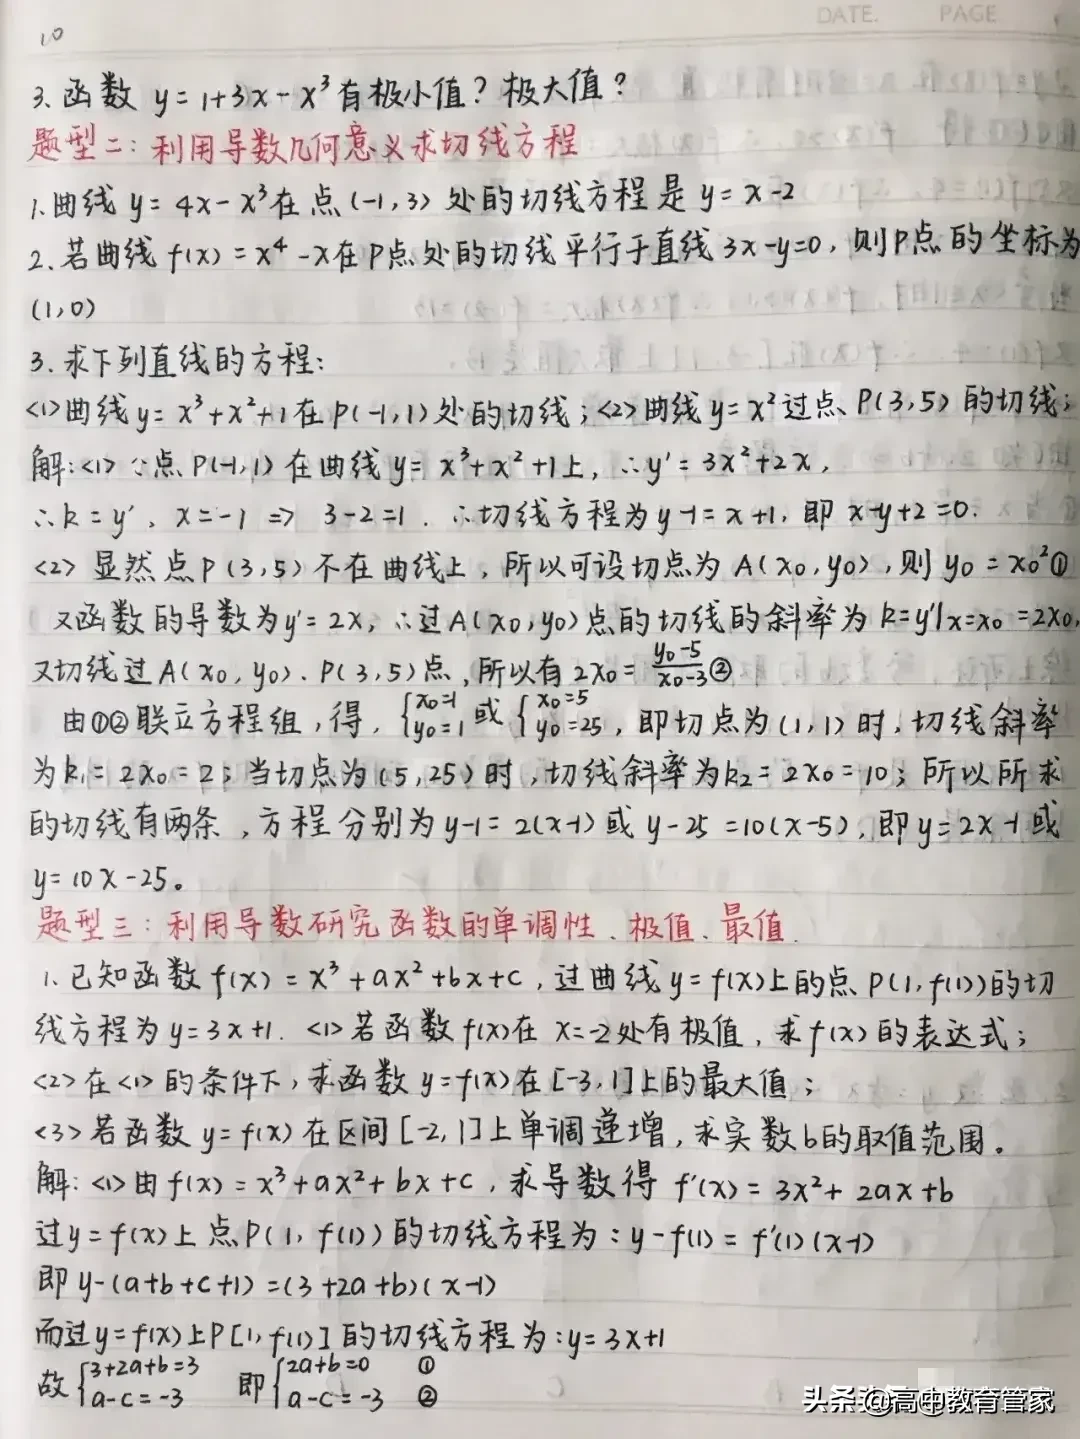 DATE. PAGE
10
3. 函数 y = 1+3x - x³有极小值? 极大值?
题型二: 利用导数几何意义求切线方程
1. 曲线 y = 4x - x³在点 (-1,3) 处的切线方程是 y = x-2
2. 若曲线 f(x) = x⁴ - x在P点处的切线平行于直线 3x-y=0, 则P点的坐标为
(1,0)
3. 求下列直线的方程:
<1>曲线 y = x³+x²+1在 P(-1,1) 处的切线; <2>曲线 y = x²过点 P(3,5) 的切线;
解: <1> ∵点 P(-1,1) 在曲线 y = x³+x²+1上, ∴y′ = 3x²+2x,
∴k = y′, x=-1 => 3-2=1. ∴切线方程为 y-1 = x+1, 即 x-y+2=0.
<2> 显然点P(3,5)不在曲线上, 所以可设切点为 A(x₀,y₀), 则 y₀ = x₀²①
又函数的导数为y′= 2x, ∴过A(x₀,y₀)点的切线的斜率为 k=y′|x=x₀ =2x₀,
又切线过 A(x₀,y₀)、P(3,5)点, 所以有 2x₀ = y₀-5/x₀-3②
由①②联立方程组, 得, {x₀=1 y₀=1 或 {x₀=5 y₀=25, 即切点为(1,1)时, 切线斜率
为k₁= 2x₀ = 2; 当切点为(5,25)时, 切线斜率为k₂= 2x₀ = 10; 所以所求
的切线有两条, 方程分别为 y-1= 2(x-1) 或 y-25 =10(x-5), 即 y= 2x-1或
y= 10x-25。
题型三: 利用导数研究函数的单调性、极值、最值.
1. 已知函数 f(x) = x³+ax²+bx+c, 过曲线 y = f(x)上的点 P(1,f(1))的切
线方程为 y=3x+1. <1>若函数f(x)在 x=-2处有极值, 求 f(x)的表达式;
<2>在<1>的条件下, 求函数 y=f(x)在[-3,1]上的最大值;
<3>若函数 y=f(x)在区间[-2,1]上单调递增, 求实数b的取值范围。
解: <1>由 f(x) = x³+ax²+bx+c, 求导数得 f′(x) = 3x²+2ax+b
过y=f(x)上点P(1,f(1))的切线方程为: y-f(1) = f′(1)(x-1)
即 y-(a+b+c+1) =(3+2a+b)(x-1)
而过y=f(x)上P[1,f(1)]的切线方程为: y=3x+1
故 {3+2a+b=3 a-c=-3 即 {2a+b=0 ① a-c=-3 ②
头条 @高中教育管家